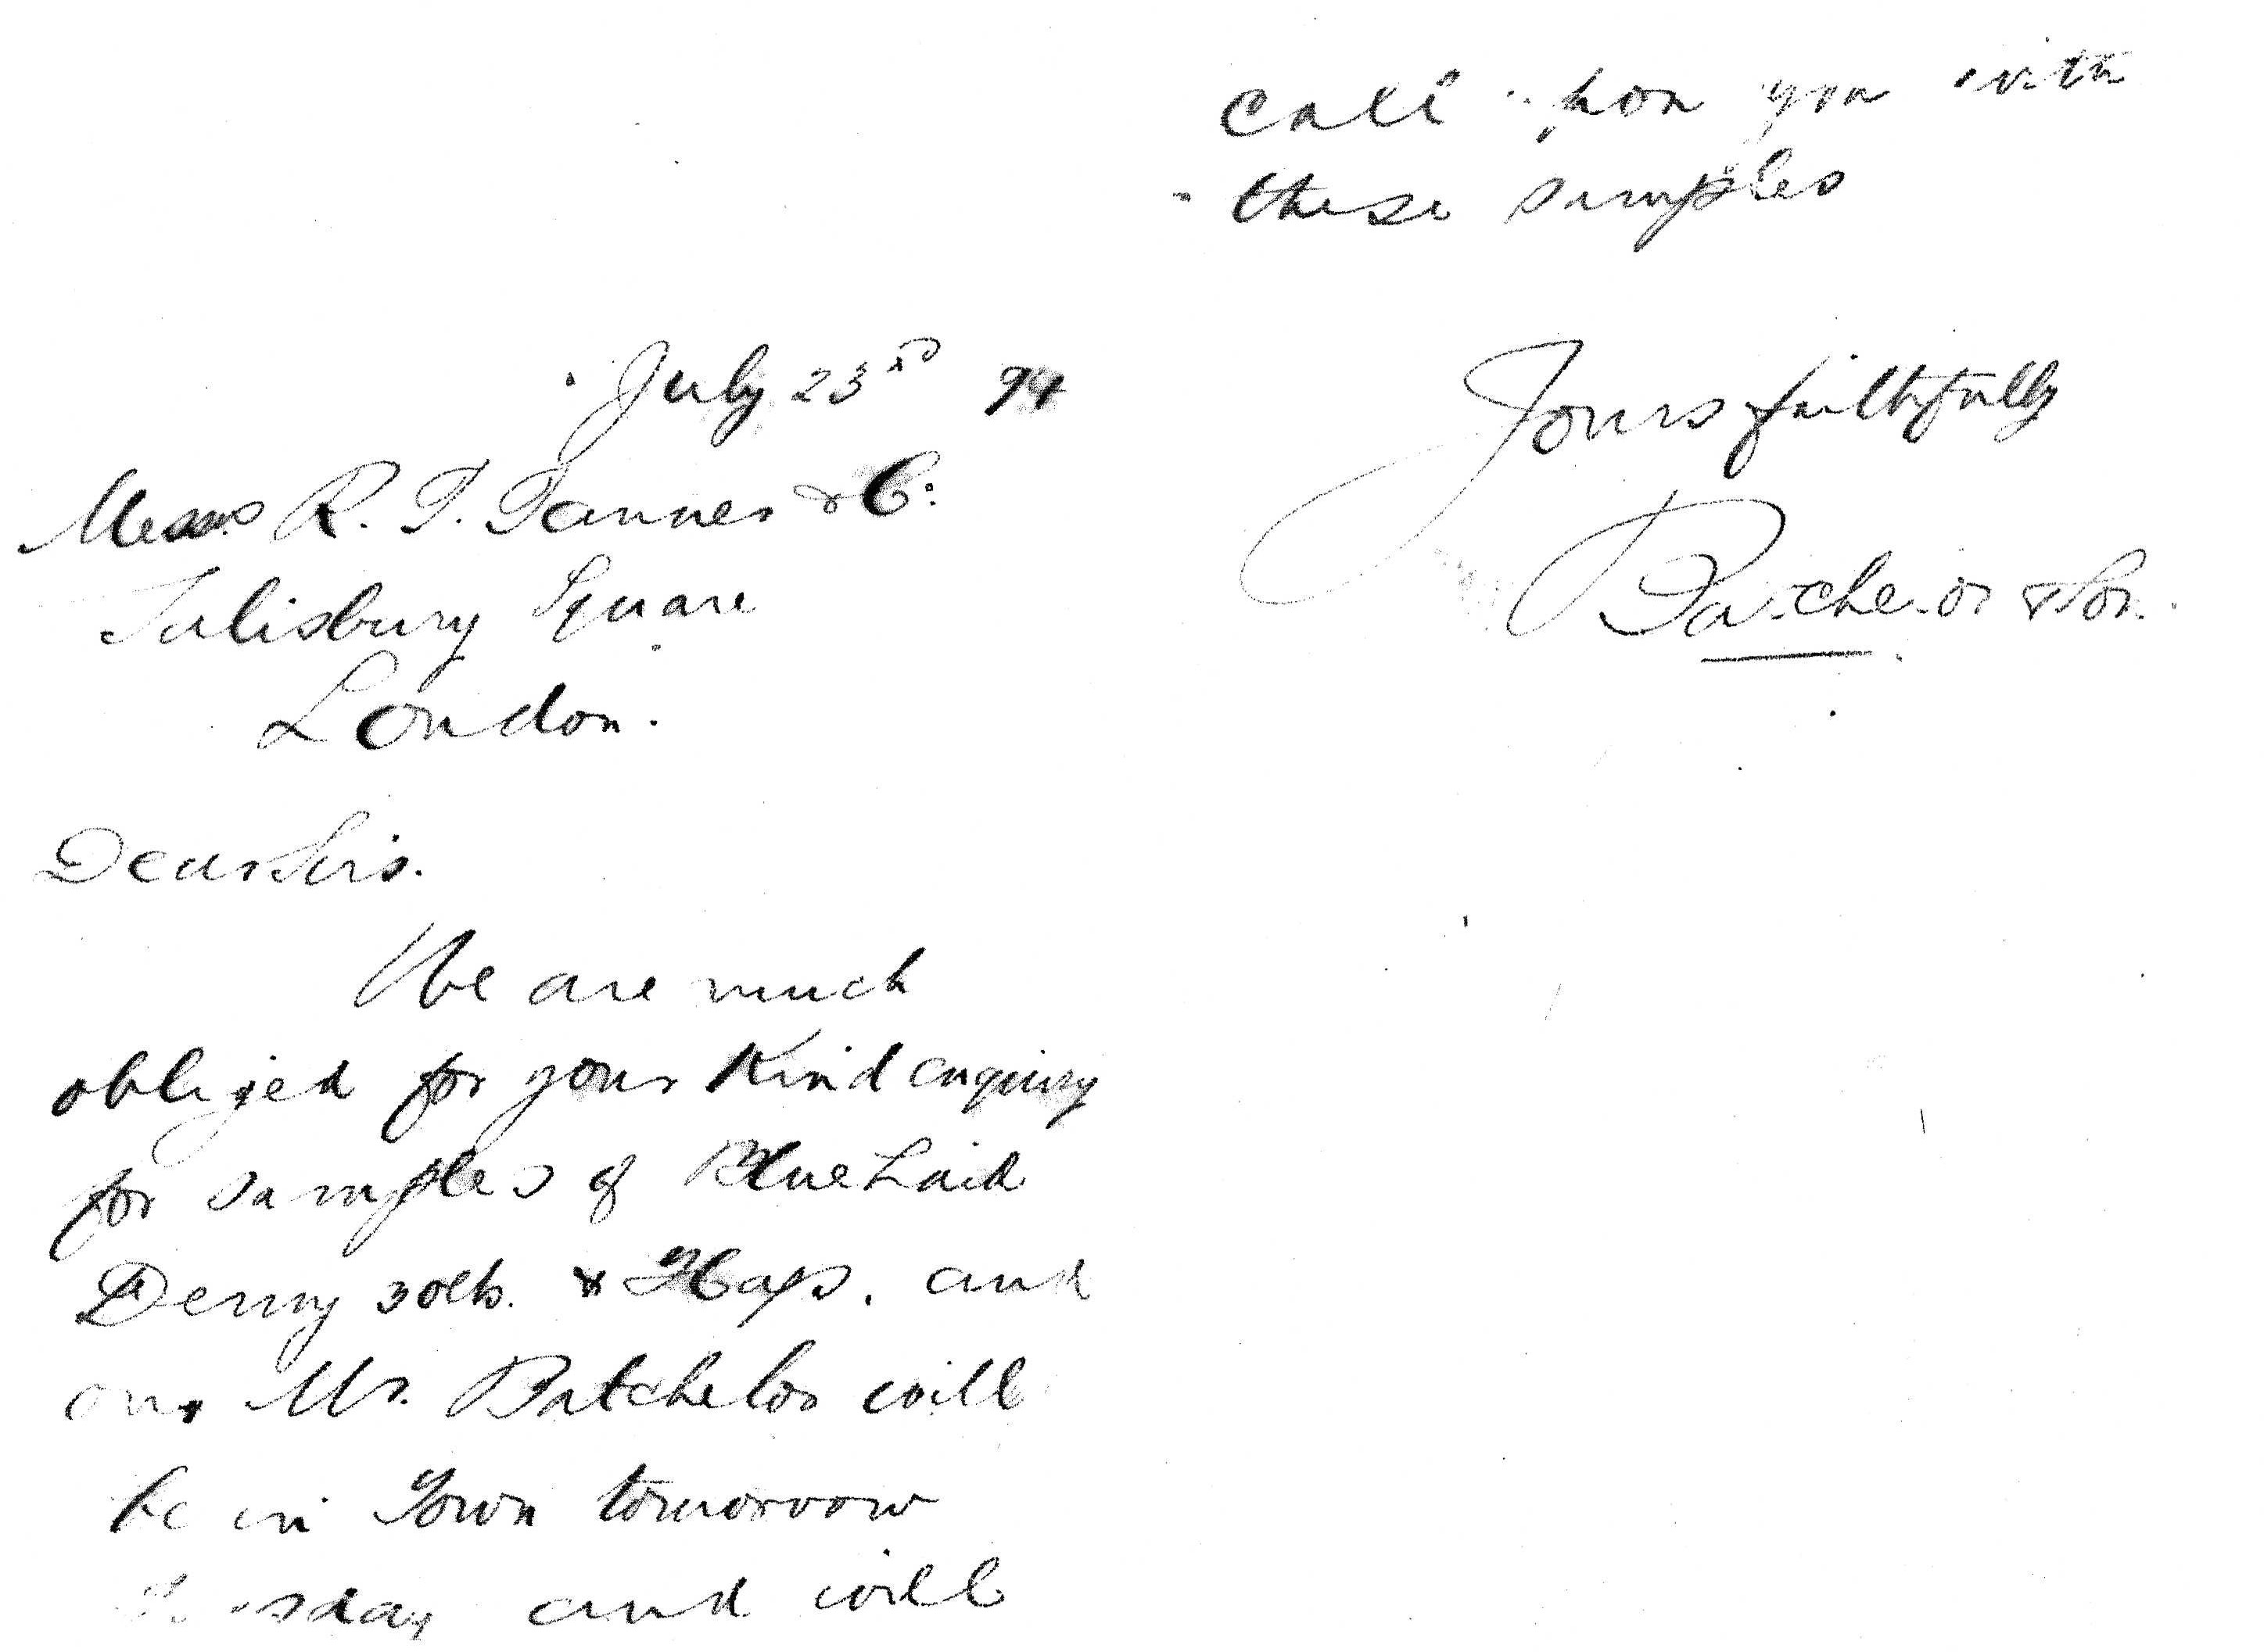 July 23rd 94
Messrs R. T. Tanner & Co:
Salisbury Square
London.
Dear Sirs.
We are much
obliged for your Kind enquiry
for samples of Blue Laid
Demy 30lb. & Caps. and
our Mr. Batchelor will
be in Town tomorrow
Tuesday and will
call upon you with
these samples
Yours faithfully
Batchelor & Son.